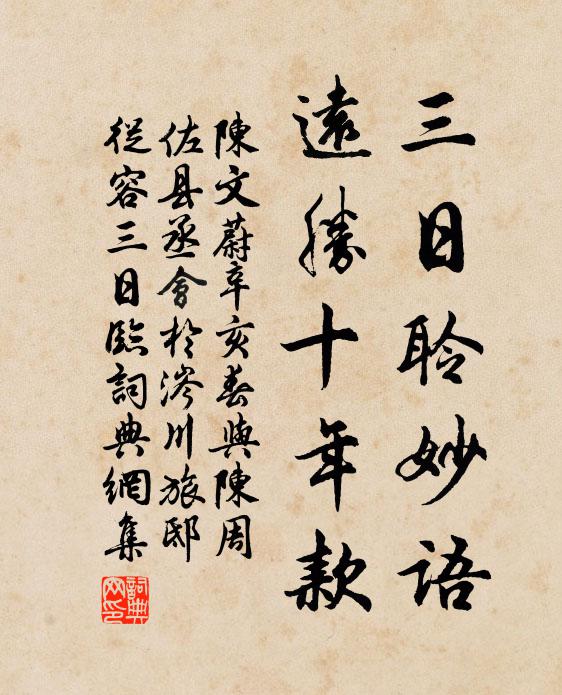 三日聆妙語
遠勝十年款
陳文蔚辛亥春與陳周
佐县丞會於涔川旅邸
從容三日臨詞典網集
詞典網印